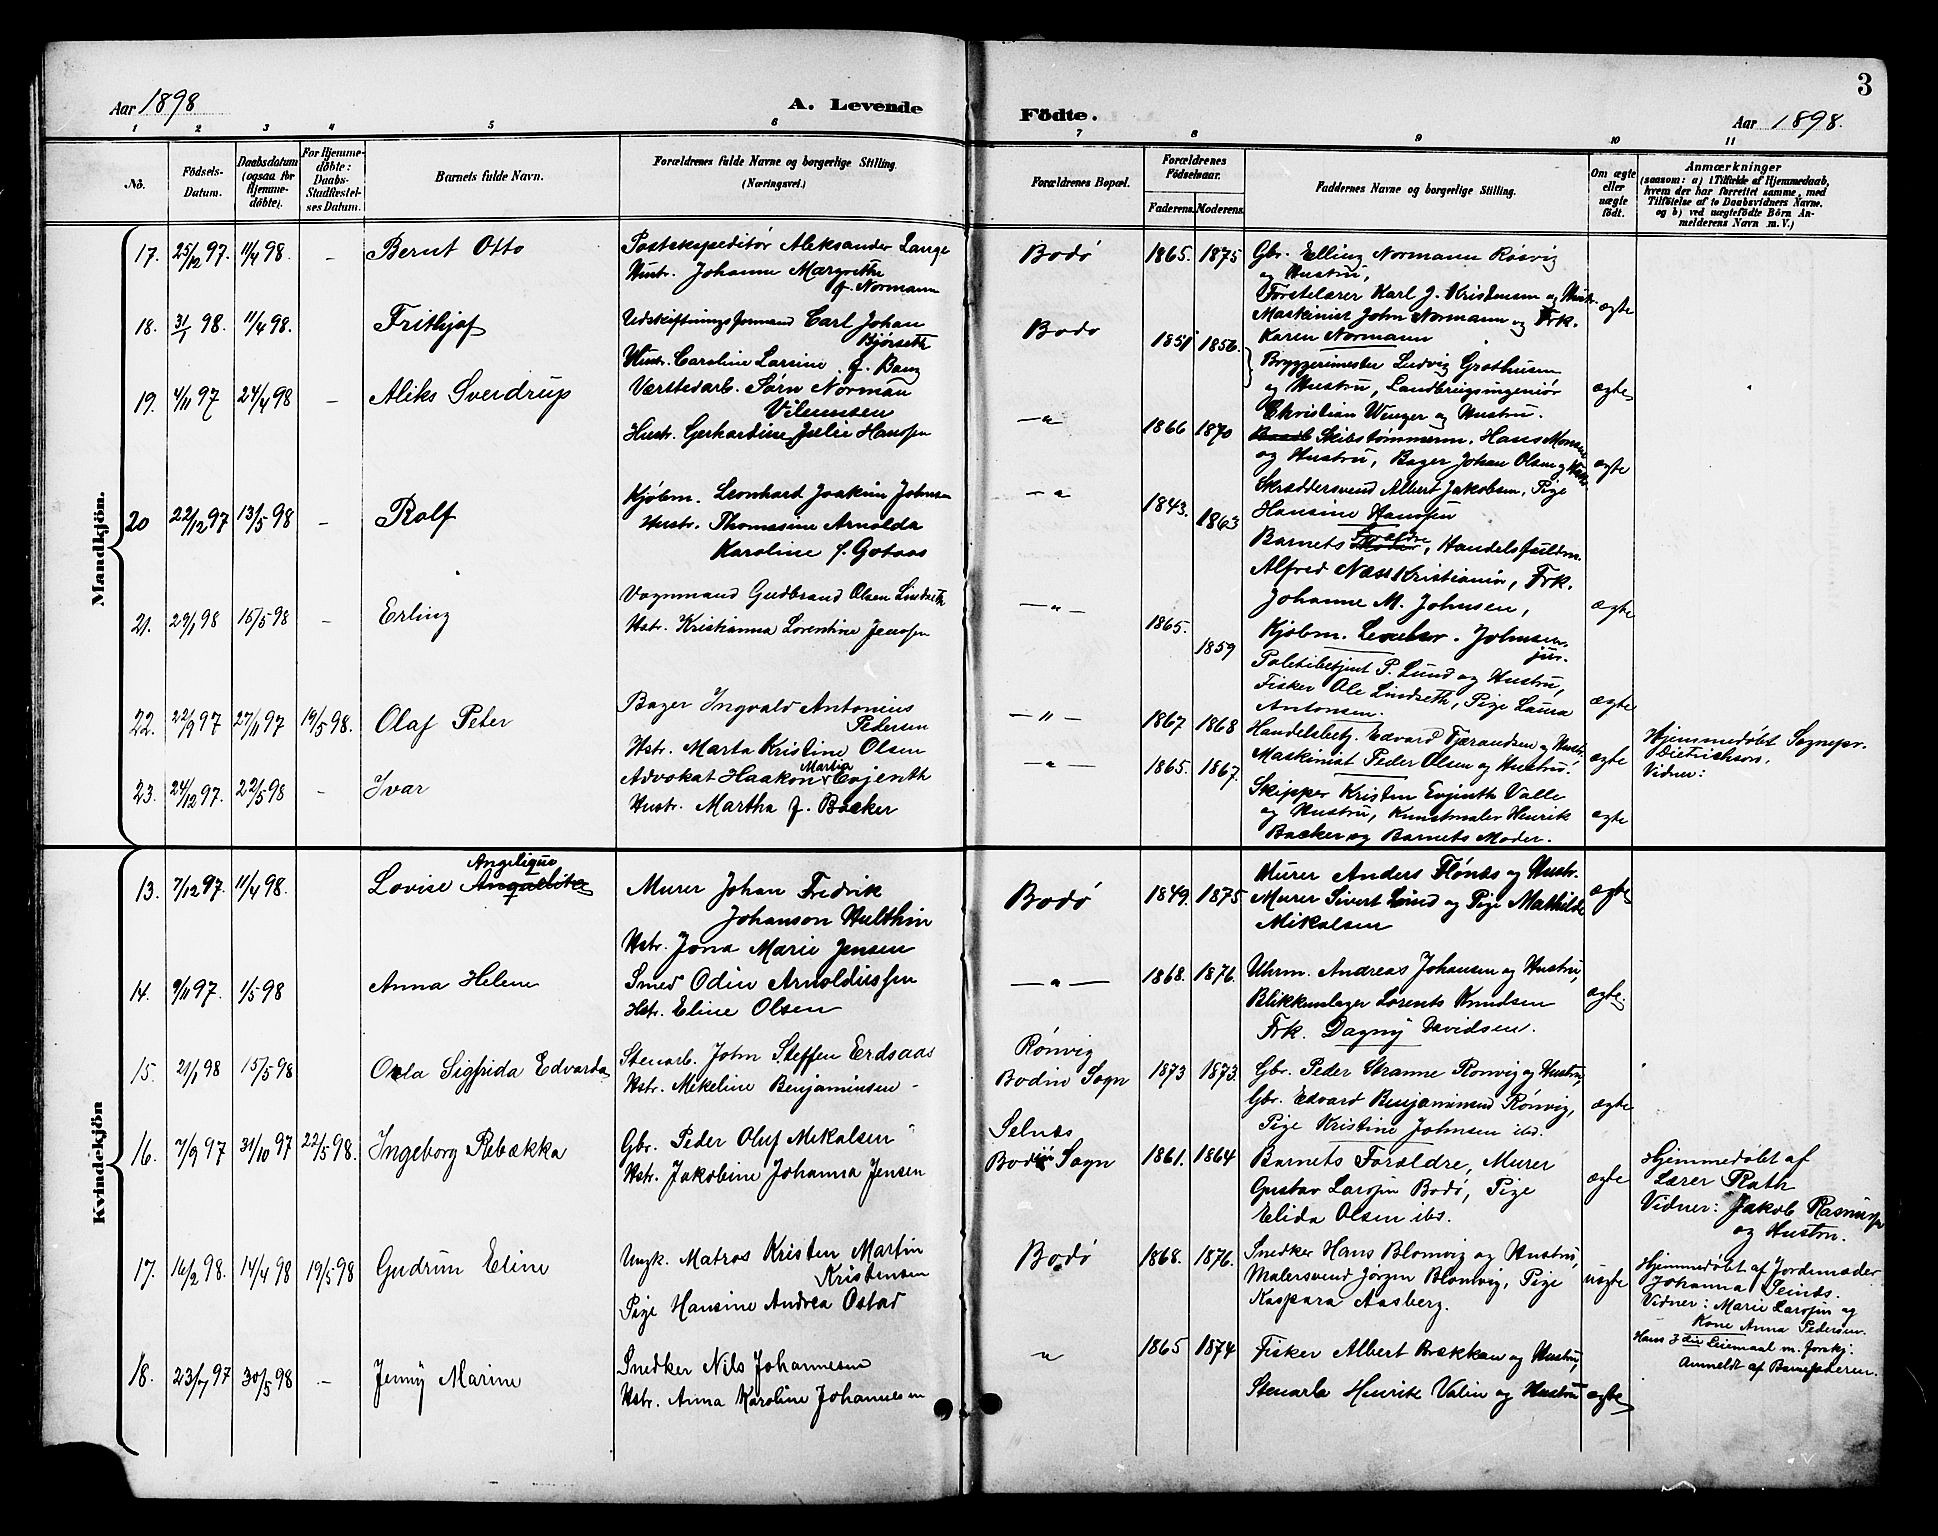 Aar 1898
A. Levende Födte.
3
Aar 1898.
1 2 3 4 5 6 7 8 9 10 11
No.
Födsels-Datum.
Daabsdatum (ogsaa for Hjemme-döbte).
For Hjemme-döbte: Daabs-Stadfæstel-ses Datum.
Barnets fulde Navn.
Forældrenes fulde Navne og borgerlige Stilling.
(Næringsvei.)
Forældrenes Bopæl.
Forældrenes Födselsaar.
Faderens.
Moderens.
Faddernes Navne og borgerlige Stilling.
Om ægte eller uægte födt.
Anmærkninger
(saasom: a) i Tilfælde af Hjemmedaab,
hvem der har forrettet samme, med
Tilföielse af to Daabsvidners Navne.
og b) ved uægtefödte Börn An-
melderens Navn m. V.)
Mandkjön.
17. 25/12 97. 11/4 98. - Bernt Otto
Postekspeditör Aleksander Lange
Hustr. Johanne Margrethe
f. Normann
Bodö 1865. 1875
Gbr. Elling Normann Rösvig
og Hustru,
Förstelærer Karl J. Kristensen og Hustr.
Maskinist John Normann og Frk.
Karen Normann
ægte
18. 31/1 98. 11/4 98. Frithjof
Udskiftningsformand Carl Johan
Bjørseth
Hustr. Caroline Larsine f. Bang
Bodö 1851 1856.
Bryggerimester Ludvig Grothusen
og Hustru, Landbrugsingeniör
Christian Wenger og Hustru.
ægte
19. 4/11 97 24/4 98 - Aliks Sverdrup
Værstedarb. Sörn Norman
Vilumsen
Hustr. Gerhardine Julie Hansen
-"- 1866 1870
Skibstömmerm. Hans Monsen
og Hustru, Bager Johan Olsen og Hustr.
Skræddersvend Albert Jakobsen, Pige
Hansine Hansen
ægte
20 22/12 97 13/5 98 - Rolf
Kjöbm. Leonhard Joakim Johnsen
Hustr. Thomasine Arnolda
Karoline f. Gotaas
-" 1843. 1863
Barnets Forældre, Handelsfuldm.
Alfred Næss Kristiania, Frk.
Johanne M. Johnsen,
Kjöbm. Johnsen
jur.
ægte
21. 29/1 98 15/5 98 - Erling
Vognmand Gudbrand Olsen Lindseth
Hstr. Kristianna Lorentine Jensen
-"- 1865. 1859
Politibetjent P. Lund og Hustru,
Fisker Ole Lindseth, Pige Laura
Antonsen.
ægte
22. 22/9 97 27/11 97 19/5 98. Olaf Peter
Bager Ingvald Antonius
Pedersen
Hstr. Marta Kristine Olsen
-"- 1867 1868
Handelsbetj. Edvard Fjærandsen og Hustr.
Maskinist Peder Olsen og Hustru.
ægte
Hjemmedöbt Sognepr.
Dietrichson.
Vidner:
23. 24/12 97. 22/5 98 - Ivar
Advokat Haakon Martin Evjenth
Hustr. Martha f. Backer
-"- 1865. 1867.
Skipper Kristen Evjenth Valle
og Hustru, Kunstmaler Henrik
Backer og Barnets Moder.
ægte
Kvindekjön
13. 7/12 97. 11/4 98. Lovise Angelique
Murer Johan Fredrik
Johanson Hulthin
Hstr. Jona Marie Jensen
Bodö 1849. 1875
Murer Anders Flönts og Hustr.
Murer Sivert Lund og Pige Mathilde
Mikalsen
ægte
14. 9/11 97. 1/5 98 Anna Helene
Smed Odin Arnoldussen
Hstr. Eline Olsen
-"- 1868. 1876.
Uhrm. Andreas Johansen og Hustru,
Blikkenslager Lorents Knudsen
Frk. Dagny Davidsen.
ægte.
15. 21/1 98 15/5 98 Orla Sigfrida Edvarda
Stenarb. John Steffen Erdsaas
Hstr. Mikeline Benjaminsen -
Rönvig
Bodin Sogn 1873 1873.
Gbr. Peder Skranne Rönvig og Hustru,
Gbr. Edvard Benjaminsen Rönvig,
Pige Kristine Johnsen ibd.
ægte
16. 7/9 97 31/10 97 22/5 98. Ingeborg Rebækka
Gbr. Peder Oluf Mikalsen
Hstr. Jakobine Johanna Jensen
Selnes
Bodin Sogn 1861. 1864
Barnets Forældre, Murer
Gustav Larsen Bodö, Pige
Elida Olsen ibd.
ægte
Hjemmedöbt af
Lærer Rath
Vidner: Jakob Rasmussen
og Hustru.
17. 16/2 98. 14/4 98 19/5 98 Gudrun Eline
Ungk. Matros Kristen Martin
Kristensen
Pige Hansine Andrea Ostad
Bodö 1868. 1876.
Snedker Hans Blomvig og Hustru,
Malersvend Jörgen Blomvig, Pige
Kaspara Aasberg.
uægte
Hjemmedöbt af Jordemoder
Johanna Seines.
Vidner: Marie Larsen og
Kone Anna Pedersen.
Hans 3die Leiermaal m. forskj.
Anmeldt af Barnefaderen.
18. 23/7 97 30/5 98 - Jenny Marine
Snedker Nils Johannesen
Hstr. Anna Karoline Johannesen
" 1865 1874
Fisker Albert Brækkan og Hustru,
Stenarb. Henrik Valin og Hustru
ægte